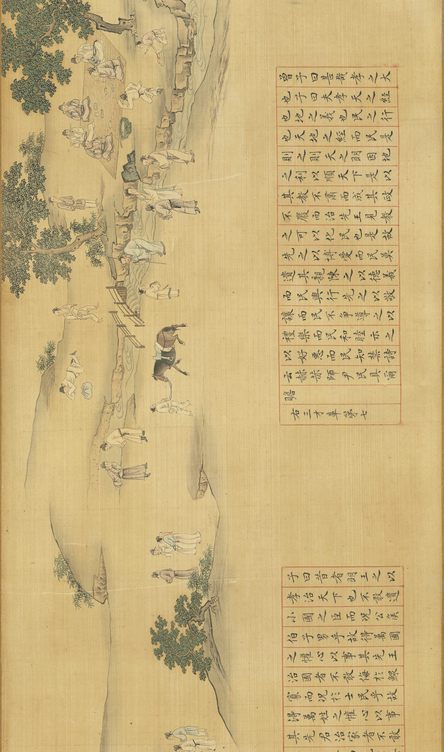 曾子曰甚哉孝之大
也子曰夫孝天之經
也地之義也民之行
也天地之經而民是
則之則天之明因地
之利以順天下是以
其教不肅而成其政
不嚴而治先王見教
之可以化民也是故
先之以博愛而民莫
遺其親陳之以德義
而民興行先之以敬
讓而民不爭導之以
禮樂而民和睦示之
以好惡而民知禁詩
云赫赫師尹民具爾
瞻
右三才章第七
子曰昔者明王之以
孝治天下也不敢遺
小國之臣而況公侯
伯子男乎故得萬國
之懽心以事其先王
治國者不敢侮於鰥
寡而況於士民乎故
得萬姓之懽心以事
其先君治家者不敢